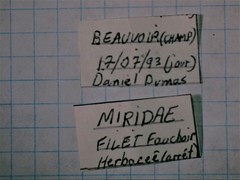 BEAUVOIR (CHAMP)
17/07/93 (jour)
Daniel Dumas
MIRIDAE
FILET Fauchoir
Herbacée (arrêt)